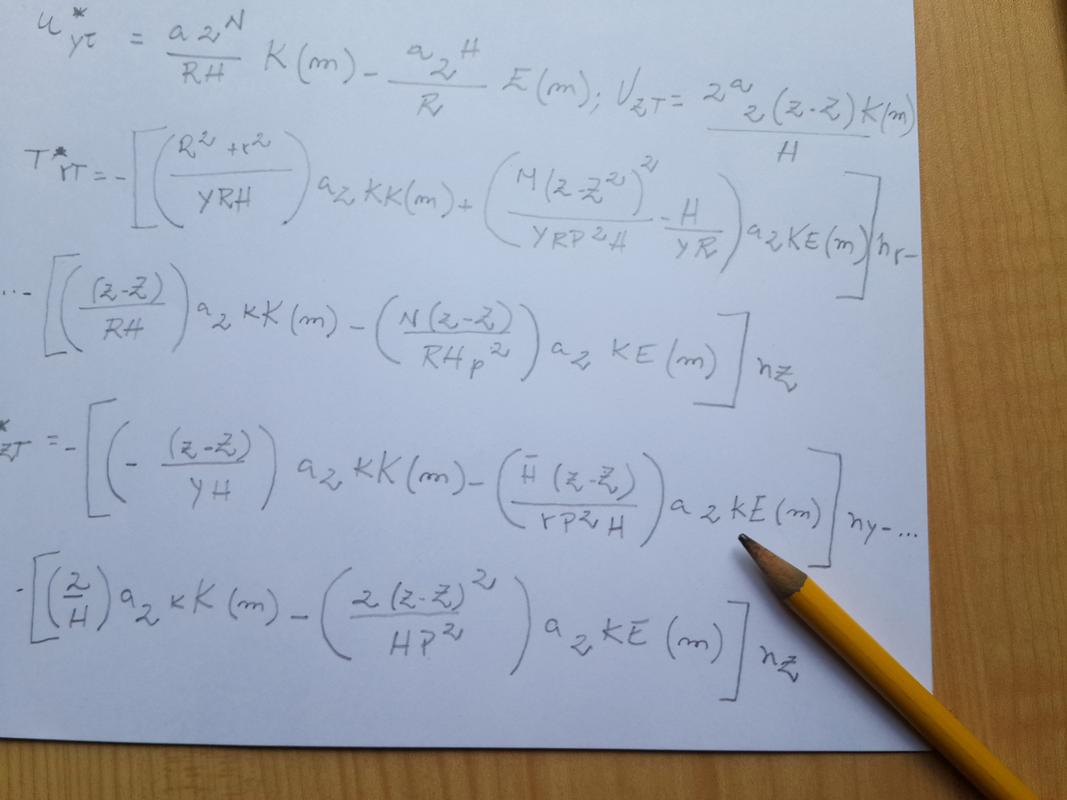 u*yτ = a2^N/RH K(m) - a2^H/R E(m); UzT = 2^a 2(z-Z)K(m)/H
T*rT = -[(R²+r²/YRH) a2 KK(m) + (M(z-Z²)²/YRP²H - H/YR) a2KE(m)]nr-
...- [((z-Z)/RH) a2 KK(m) - (N(z-Z)/RHp²) a2 KE(m)] nZ
*zT = -[(- (z-Z)/YH) a2 KK(m) - (H̄(z-Z)/rP²H) a2KE(m)] ny-...
-[(2/H) a2 KK(m) - (2(z-Z)²/HP²) a2 KE(m)] nZ